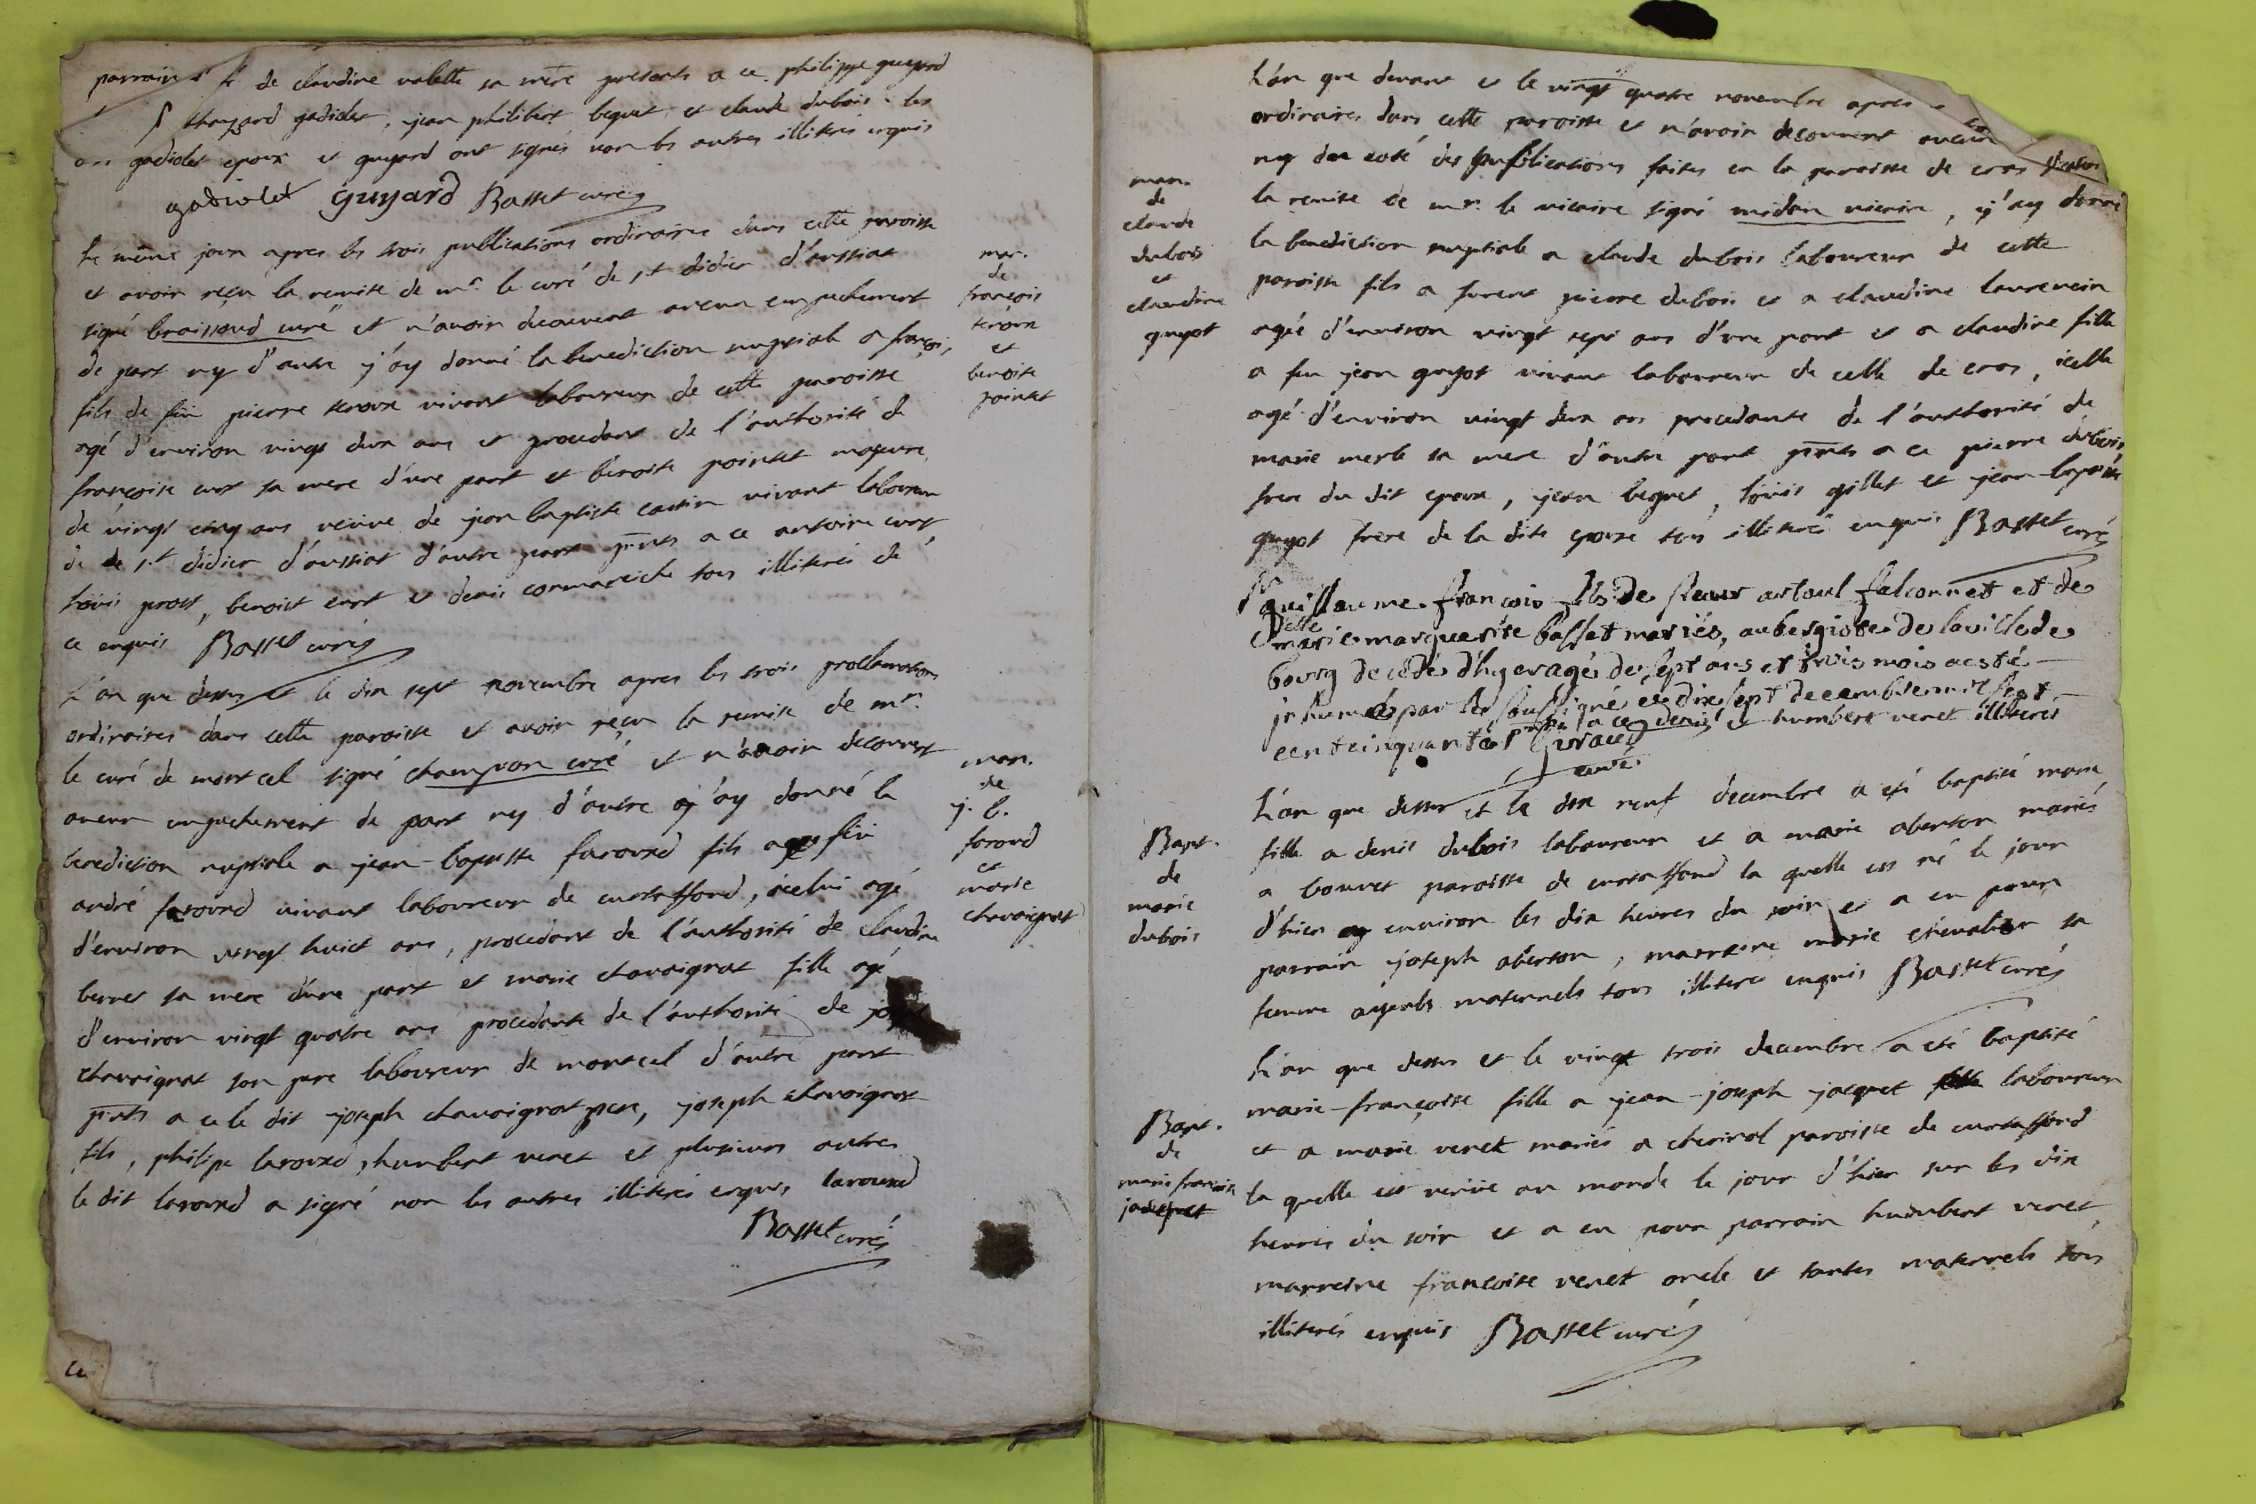 de claudine valette sa mere presents a ce philippe guyard
gadiolet, jean philibert beguet et claude dubois les
gadiolet epoux et guyard ont signés non les autres illiterés enquis
gadiolet Guyard Basset curé
Le même jour apres les trois publications ordinaires dans cette paroisse
et avoir reçu la remise de mr. le curé de st didier d'aussiat
signé braissoud curé et n'avoir decouvert aucun empechement
de part ny d'autre j'ay donné la benediction nuptiale a françois
fils de feu pierre seroux vivant laboureur de cette paroisse
agé d'environ vingt deux ans et procedant de l'authorité de
françoise curt sa mere d'une part et benoite pointet majeure
de vingt cinq ans veuve de jean baptiste cattin vivant laboureur
de de st didier d'aussiat d'autre part pnts a ce antoine curt
loüis prost, benoist curt et denis cormareiche tous illiterés de
ce enquis Basset curé
mar.
de
françois
seroux
et
benoite
pointet
L'an que dessus et le dix sept novembre apres les trois proclamations
ordinaires dans cette paroisse et avoir reçu la remise de mr.
le curé de montcel signé champion curé et n'avoir decouvert
aucun empechement de part ny d'autre j'ay donné la
benediction nuptiale a jean-baptiste favourd fils a feu
andré favourd vivant laboureur de curtaffond, icelui agé
d'environ vingt huict ans, procedant de l'authorité de claudine
berret sa mere d'une part et marie chavaignat fille agé
d'environ vingt quatre ans procedante de l'authorité de
chavaignat son pere laboureur de montcel d'autre part
pnts a ce le dit joseph chavaignat pere, joseph chavaignat
fils, philipe lavourd, humbert venet et plusieurs autres
le dit lavourd a signé non les autres illiterés enquis lavourd
Basset curé
mar.
de
j. b.
favourd
et
marie
chavaignat
L'an que devant et le vingt quatre novembre apres
ordinaires dans cette paroisse et n'avoir decouvert aucun
ny du coté des publications faites en la paroisse de cras
la remise de mr. le vicaire signé midan vicaire, j'ay donné
la benediction nuptiale a claude dubois laboureur de cette
paroisse fils a furent pierre dubois et a claudine laurencin
agé d'environ vingt sept ans d'une part et a claudine fille
a feu jean guyot vivant laboureur de celle de cras, icelle
agé d'environ vingt deux ans procedante de l'authorité de
marie merle sa mere d'autre part pnts a ce pierre dubois
frere du dit epoux, jean beguet, loüis gillet et jean-baptiste
guyot frere de la dite epouse tous illiterés enquis Basset curé
mar.
de
claude
dubois
et
claudine
guyot
Sr guillaume françois fils de sieur artaul falconnet et de
Delle marie marguerite basset mariés, aubergiste de la ville de
bourg decedé d'hyer agé de sept ans et trois mois a esté
inhumé par le soussigné le dix sept decembre mil sept
cent cinquante pnts a ce denis et humbert venet illiterés
curé
L'an que dessus et le dix neuf decembre a eté baptisé marie
fille a denis dubois laboureur et a marie oberson mariés
a bouvet paroisse de curtaffond la quelle est né le jour
d'hier environ les dix heures du soir et a eu pour
parrain joseph oberson, marreine marie chevalier sa
femme ayeuls maternels tous illiterés enquis Basset curé
Bapt.
de
marie
dubois
L'an que dessus et le vingt trois decembre a eté baptisé
marie-françoise fille a jean-joseph jacquet laboureur
et a marie venet mariés a cherinal paroisse de curtaffond
la quelle est venüe au monde le jour d'hier sur les dix
heures du soir et a eu pour parrain humbert venet,
marreine françoise venet oncle et tantes maternels tous
illiterés enquis Basset curé
Bapt.
de
marie françoise
jacquet